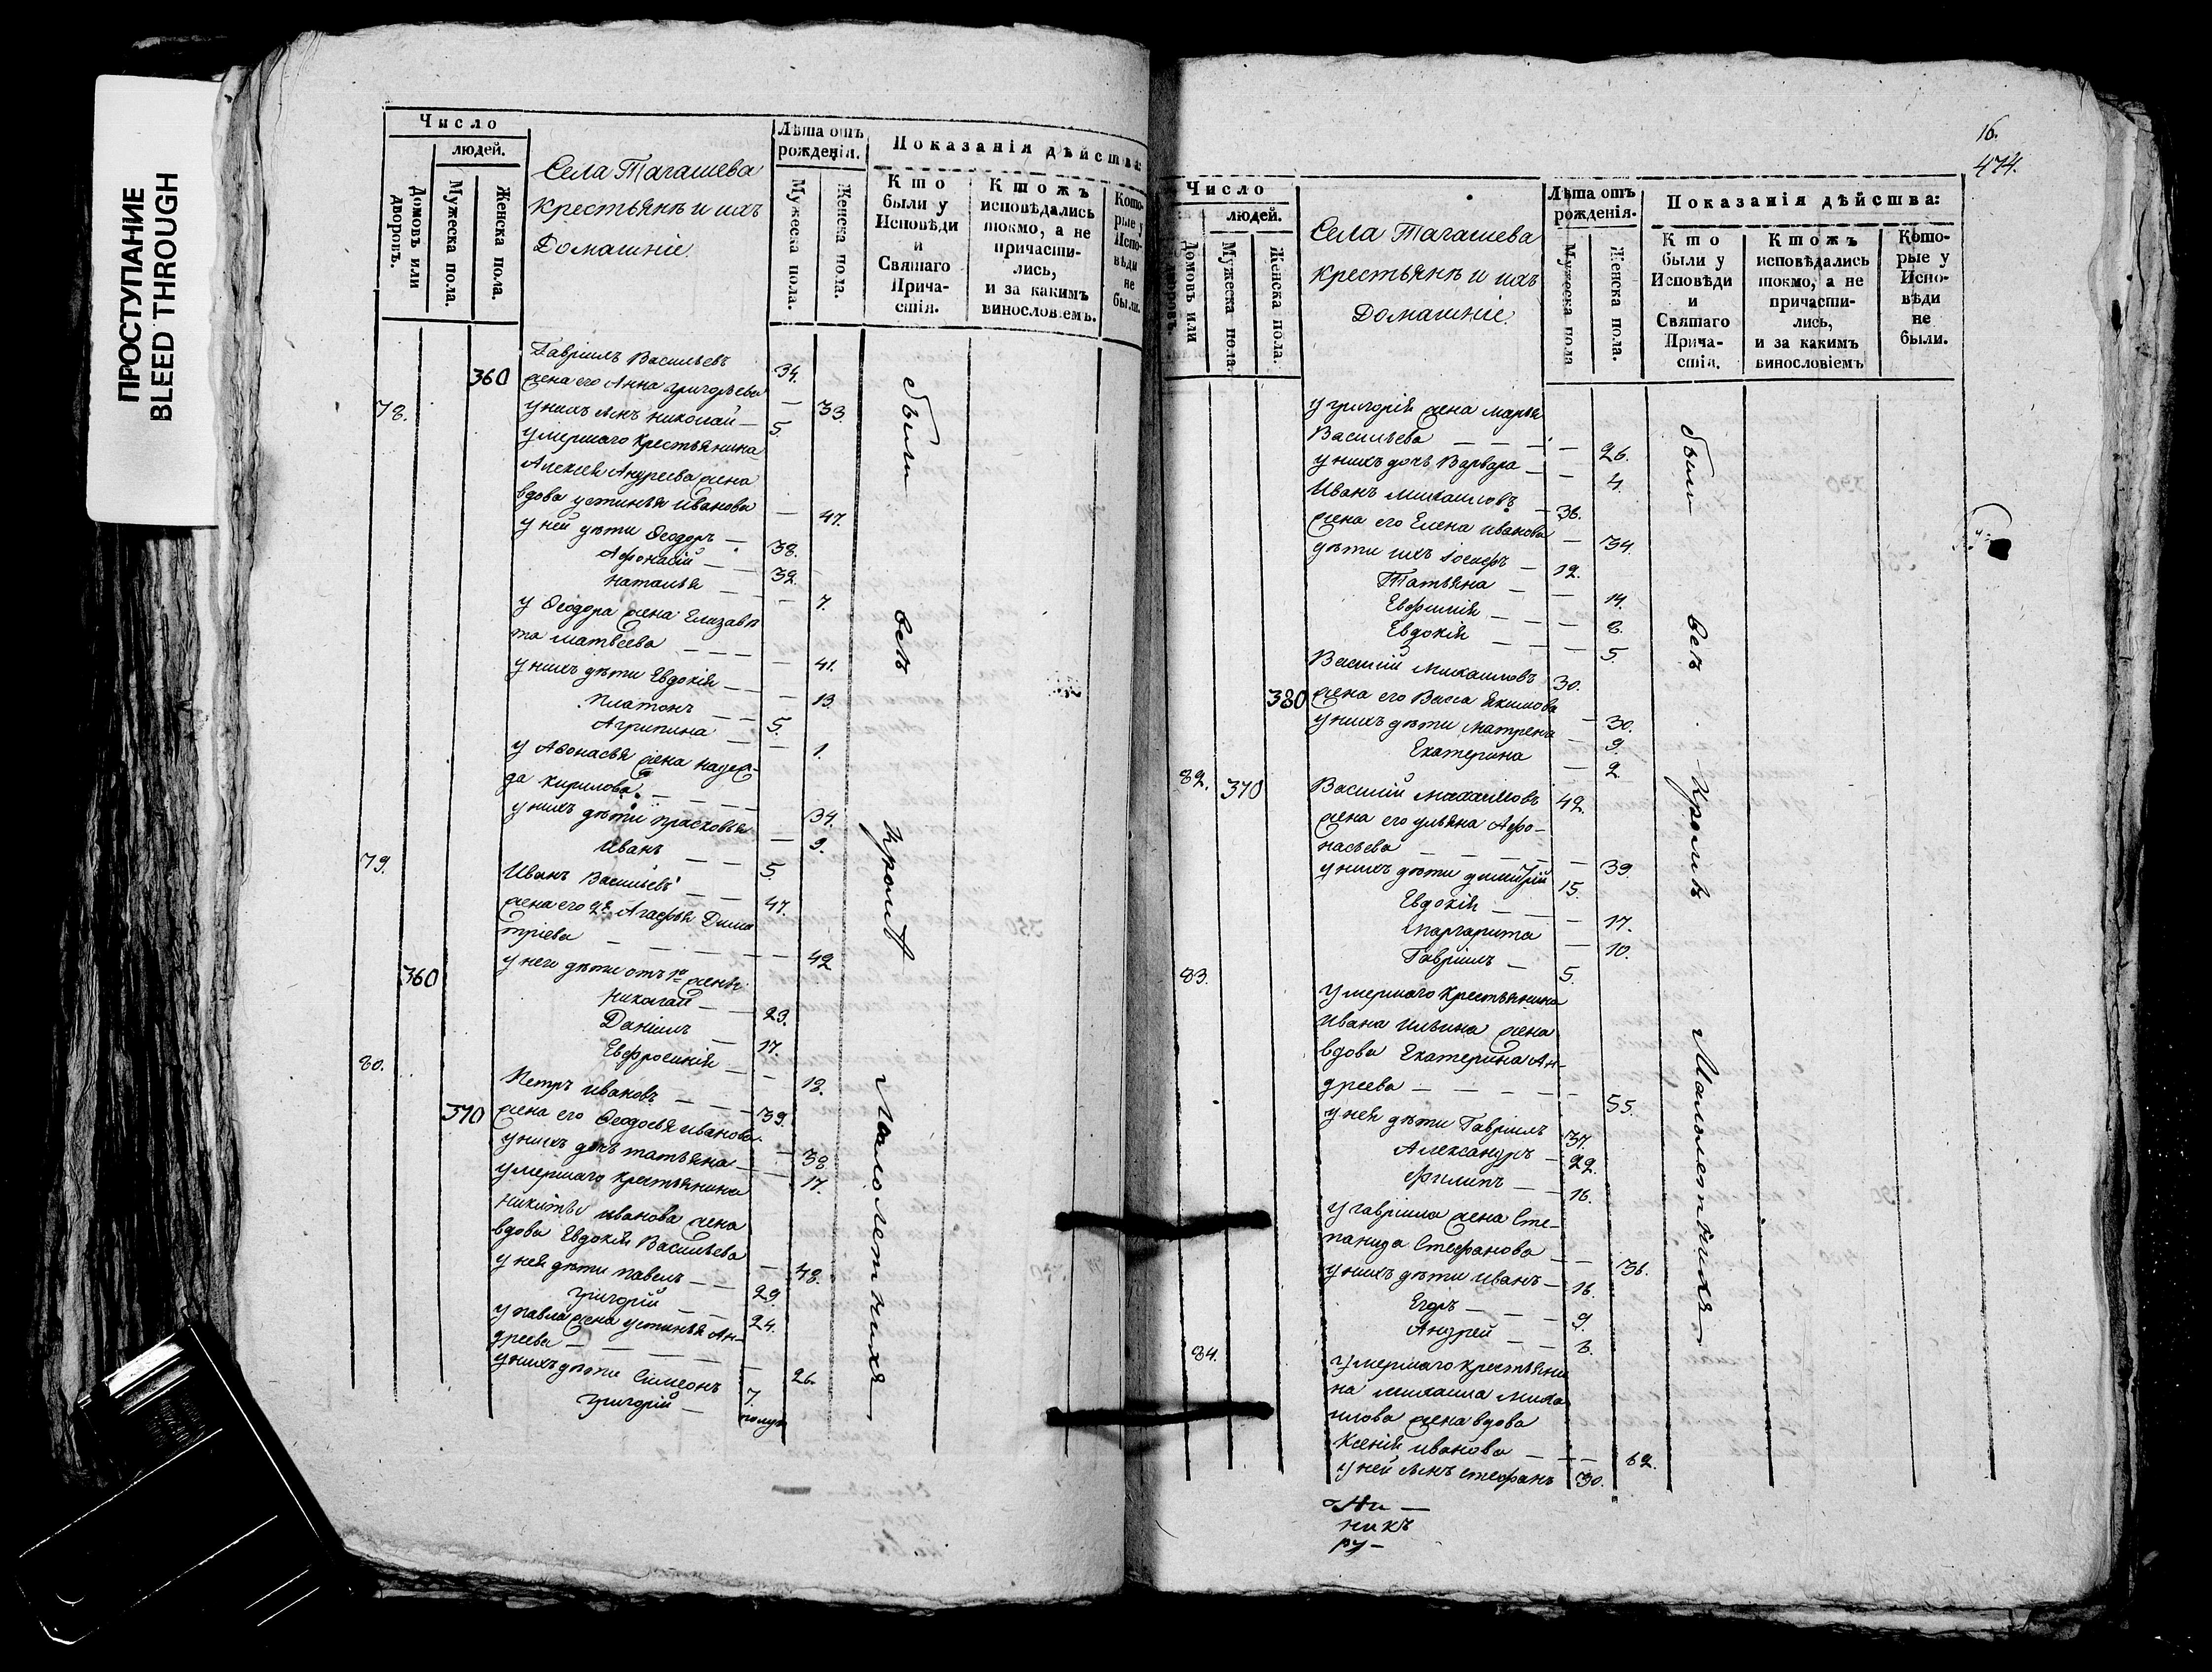 ПРОСТУПАНИЕ
BLEED THROUGH
Число
людей.
Домовъ или дворовъ.
Мужеска пола.
Женска пола.
Села Тагашева
крестьянѣ и ихъ
Домашніе.
Лѣта отъ рожденія.
Мужеска пола.
Женска пола.
Показанія дѣйства:
Кто были у Исповѣди и Святаго Прича-стія.
Ктожъ исповѣдались токмо, а не причасти-лись, и за какимъ винословіемъ.
Кото-рые у Испо-вѣди не были.
Гавріилъ Васильевъ 34.
360 жена его Анна Григорьева — 33.
78. у нихъ сынъ Николай — 5.
умершаго крестьянина
Алексѣя Андреева жена
вдова устинья Иванова — 47.
у ней дѣти Ѳеодоръ — 38.
Афонасій — — 32.
наталья — — — 7.
у Ѳеодора жена Елизаве
та матвеева — — — — 41.
у нихъ дѣти Евдокія — — — 13.
Платонъ — — 5.
Агрипина — — 1.
у Афонасья жена надеж-
да кирилова — — — —
34.
у нихъ дѣти прасковья — 9.
иванъ — — 5.
79. Иванъ Васильевъ — 47.
жена его 2я Агафья Дими
тріева — — — — — 42
у него дѣти отъ 1й жены
360 Николай — — 23.
Даніилъ — 17.
Евфросинія — — 18.
80. Петръ ивановъ — — — 39.
370 жена его Ѳеодосья иванова — 38.
у нихъ дочь татьяна — — 17.
умершаго крестьянина
никиты иванова жена
вдова Евдокія Васильева — 48.
у нея дѣти павелъ — — 29.
григорій — — 24.
у павла жена устинья Ан-
дреева — — — — — 26.
у нихъ дѣти Симеонъ 7.
григорій — полуго
были всѣ кромѣ Малолетнихъ
16.
474.
Число
людей.
Домовъ или дворовъ.
Мужеска пола
Женска пола.
Села Тагашева
крестьянѣ и ихъ
Домашніе.
Лѣта отъ рожденія.
Мужеска пола
Женска пола.
Показанія дѣйства:
Кто были у Исповѣди и Святаго Прича-стія.
Ктожъ исповѣдались токмо, а не причасти-лись, и за какимъ винословіемъ
Кото-рые у Испо-вѣди не были.
у григорія жена марья
Васильева — — — — 26.
у нихъ дочь Варвара — — 4.
Иванъ михаиловъ — 36.
жена его Елена иванова — 34.
дѣти ихъ Іосифъ — 12.
Татьяна — — 14.
Евфимія — — — 8.
Евдокія — — — 5.
Василій михаиловъ 30.
380 жена его Васса Якимова — 30.
у нихъ дѣти матрена — 9.
Екатерина — 2
82. 370 Василій михаиловъ 42.
жена его ульяна Афо-
насьева — — — — — 39.
у нихъ дѣти димитрій 15.
Евдокія — — — 17.
Маргарита — 10.
Гавріилъ — 5.
83. умершаго крестьянина
Ивана ильина жена
вдова Екатерина Ан-
дреева — — — — — 55.
у нея дѣти Гавріилъ 37.
Александръ — 22.
Филипъ — — 16.
у гавріила жена Сте-
панида Стефанова — — 36.
у нихъ дѣти иванъ — 16.
Егоръ — — — 9.
Андрей — — 6.
84. умершаго крестьяни
на михаила миха
илова жена вдова
Ксенія иванова — — — 62.
у ней сынъ стефанъ 30.
были всѣ кромѣ Малолетнихъ
никъ
ру-